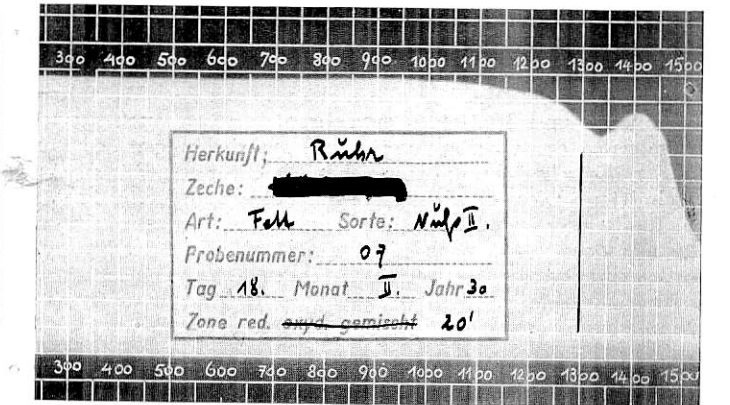 300 400 500 600 700 800 900 1000 1100 1200 1300 1400 1500
Herkunft: Ruhr
Zeche:
Art: Fett Sorte: Nuß II.
Probenummer: 07
Tag 18. Monat II. Jahr 30
Zone red. oxyd. gemischt 20'
300 400 500 600 700 800 900 1000 1100 1200 1300 1400 1500